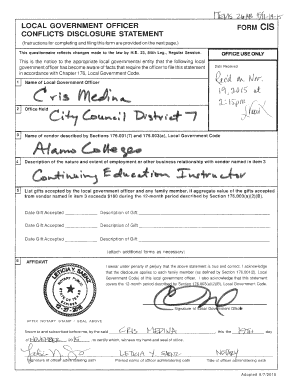 LOCAL GOVERNMENT OFFICER
CONFLICTS DISCLOSURE STATEMENT
FORM CIS
(Instructions for completing and filing this form are provided on the next page.)
This questionnaire reflects changes made to the law by H.B. 23, 84th Leg., Regular Session.
OFFICE USE ONLY
This is the notice to the appropriate local governmental entity that the following local
government officer has become aware of facts that require the officer to file this statement
in accordance with Chapter 176, Local Government Code.
Date Received
Recd on Nov.
19, 2015 at
2:15pm
1 Name of Local Government Officer
Cris Medina
2 Office Held
City Council District 7
3 Name of vendor described by Sections 176.001(7) and 176.003(a), Local Government Code
Alamo Colleges
4 Description of the nature and extent of employment or other business relationship with vendor named in item 3
Continuing Education Instructor
5 List gifts accepted by the local government officer and any family member, if aggregate value of the gifts accepted
from vendor named in item 3 exceeds $100 during the 12-month period described by Section 176.003(a)(2)(B).
Date Gift Accepted Description of Gift
Date Gift Accepted Description of Gift
Date Gift Accepted Description of Gift
(attach additional forms as necessary)
6 AFFIDAVIT
I swear under penalty of perjury that the above statement is true and correct. I acknowledge
that the disclosure applies to each family member (as defined by Section 176.001(2), Local
Government Code) of this local government officer. I also acknowledge that this statement
covers the 12-month period described by Section 176.003(a)(2)(B), Local Government Code.
Signature of Local Government Officer
AFFIX NOTARY STAMP / SEAL ABOVE
Sworn to and subscribed before me, by the said CRIS MEDINA, this the 19th day
of NOVEMBER, 2015, to certify which, witness my hand and seal of office.
LETICIA Y. SAENZ NOTARY
Signature of officer administering oath Printed name of officer administering oath Title of officer administering oath
Adopted 8/7/2015